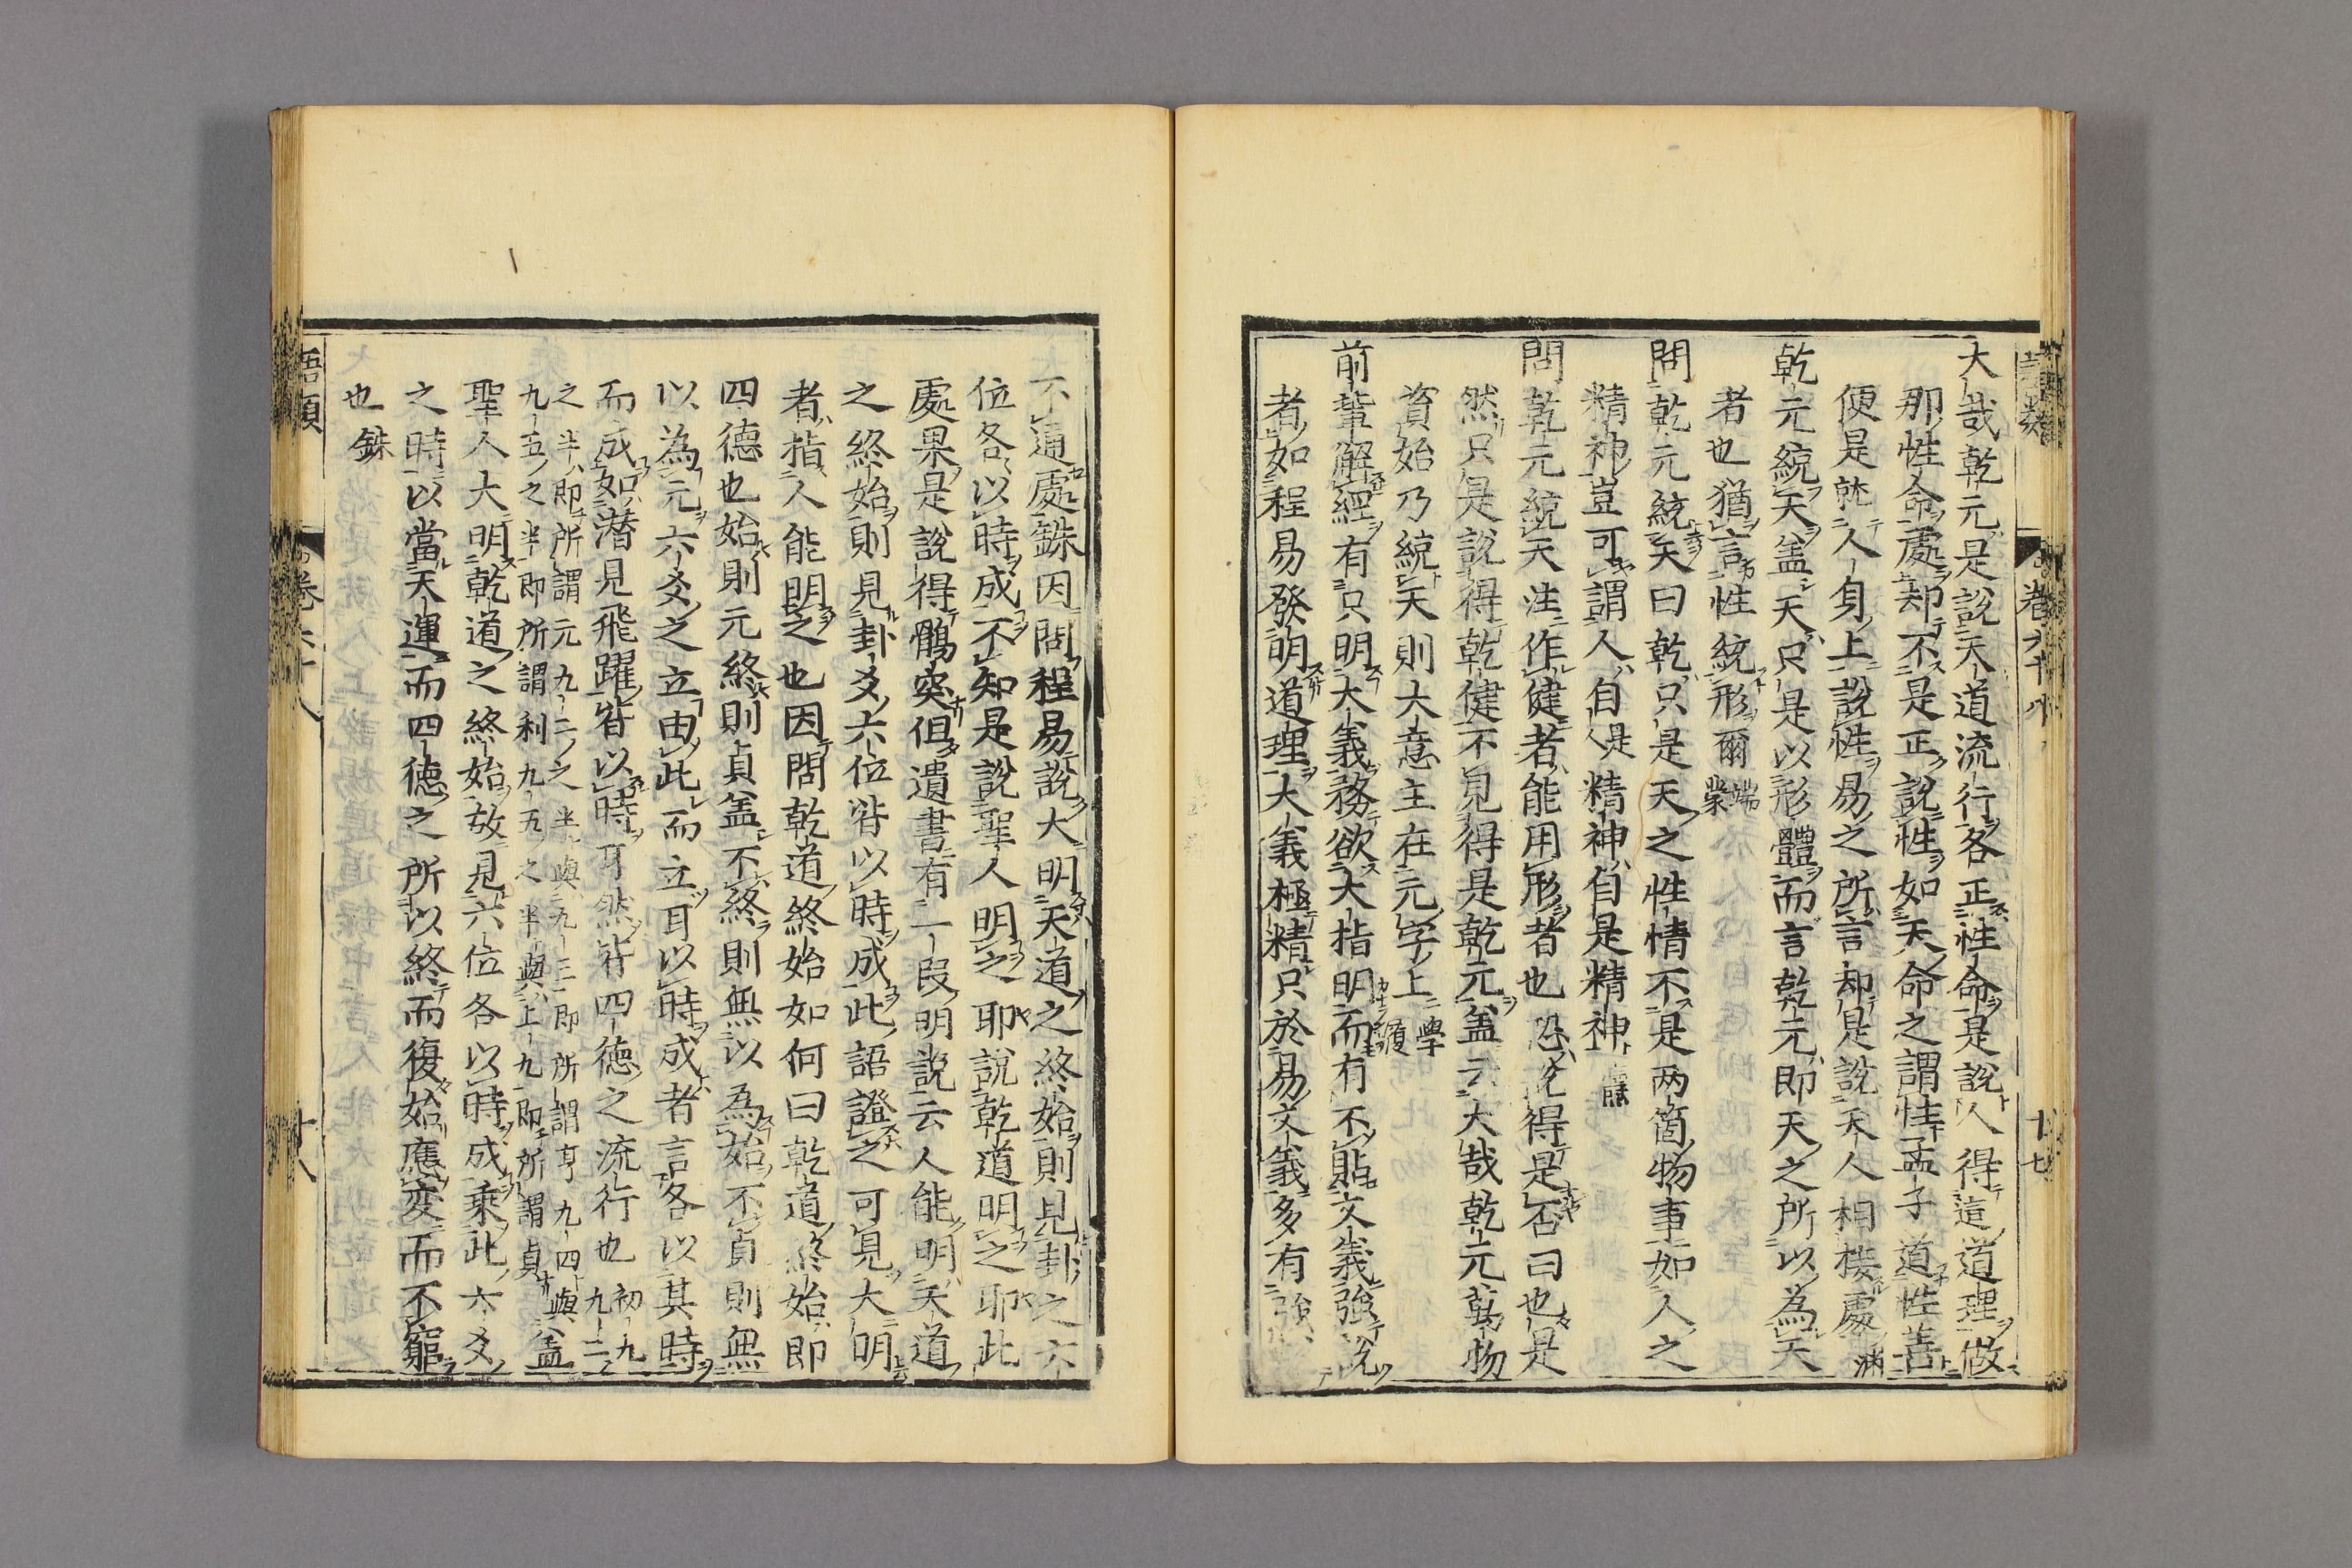 大哉乾元是説天道流行各正性命是説人得這道理做
那性命處却不是正説性如天命之謂性孟子道性善
便是就人身上説性易之所言却是説天人相接處 淵
乾元統天盖天只是以形體而言乾元即天之所以為天
者也猶言性統形爾 端蒙
問乾元統天曰乾只是天之性情不是两箇物事如人之
精神豈可謂人自是人精神自是精神
問乾元統天注作健者能用形者也恐説得是否曰也是
然只是説得乾健不見得是乾元盖云大哉乾元萬物
資始乃統天則大意主在元字上 學履
前輩解經有只明大義務欲大指明而有不貼文義強説
者如程易發明道理大義極精只於易文義多有強
不通處銖因問程易説大明天道之終始則見卦之六
位各以時成不知是説聖人明之耶説乾道明之耶此
處果是説得鶻突但遺書有一叚明説云人能明天道
之終始則見卦爻六位皆以時成此語證之可見大明
者指人能明之也因問乾道終始如何曰乾道終始即
四德也始則元終則貞盖不終則無以為始不貞則無
以為元六爻之立由此而立耳以時成者言各以其時
而成如潜見飛躍皆以時耳然皆四德之流行也 初九九二
之半即所謂元九二之半與九三即所謂亨九四與
九五之半即所謂利九五之半與上九即所謂貞 盖
聖人大明乾道之終始故見六位各以時成乘此六爻
之時以當天運而四德之所以終而復始應変而不窮
也 銖
語類
卷六十八
十七
語類
卷六十八
十八